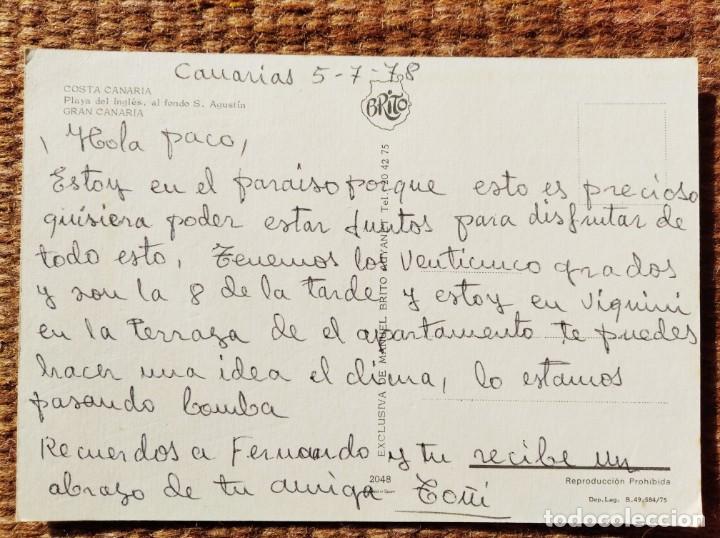 Canarias 5-7-78
COSTA CANARIA
Playa del Inglés, al fondo S. Agustín
GRAN CANARIA
BRITO
¡ Hola paco,
Estoy en el paraiso porque esto es precioso
quisiera poder estar juntos para disfrutar de
todo esto, Tenemos los venticinco grados
y son la 8 de la tarde y estoy en viquini
en la terraza de el apartamento te puedes
hacer una idea el clima, lo estamos
pasando bomba
Recuerdos a Fernando y tu recibe un
abrazo de tu amiga Toñi
EXCLUSIVA DE MANUEL BRITO Tel. 20 42 75
2048
Reproducción Prohibida
Dep. Leg. B. 49.584/75
todocoleccion.net